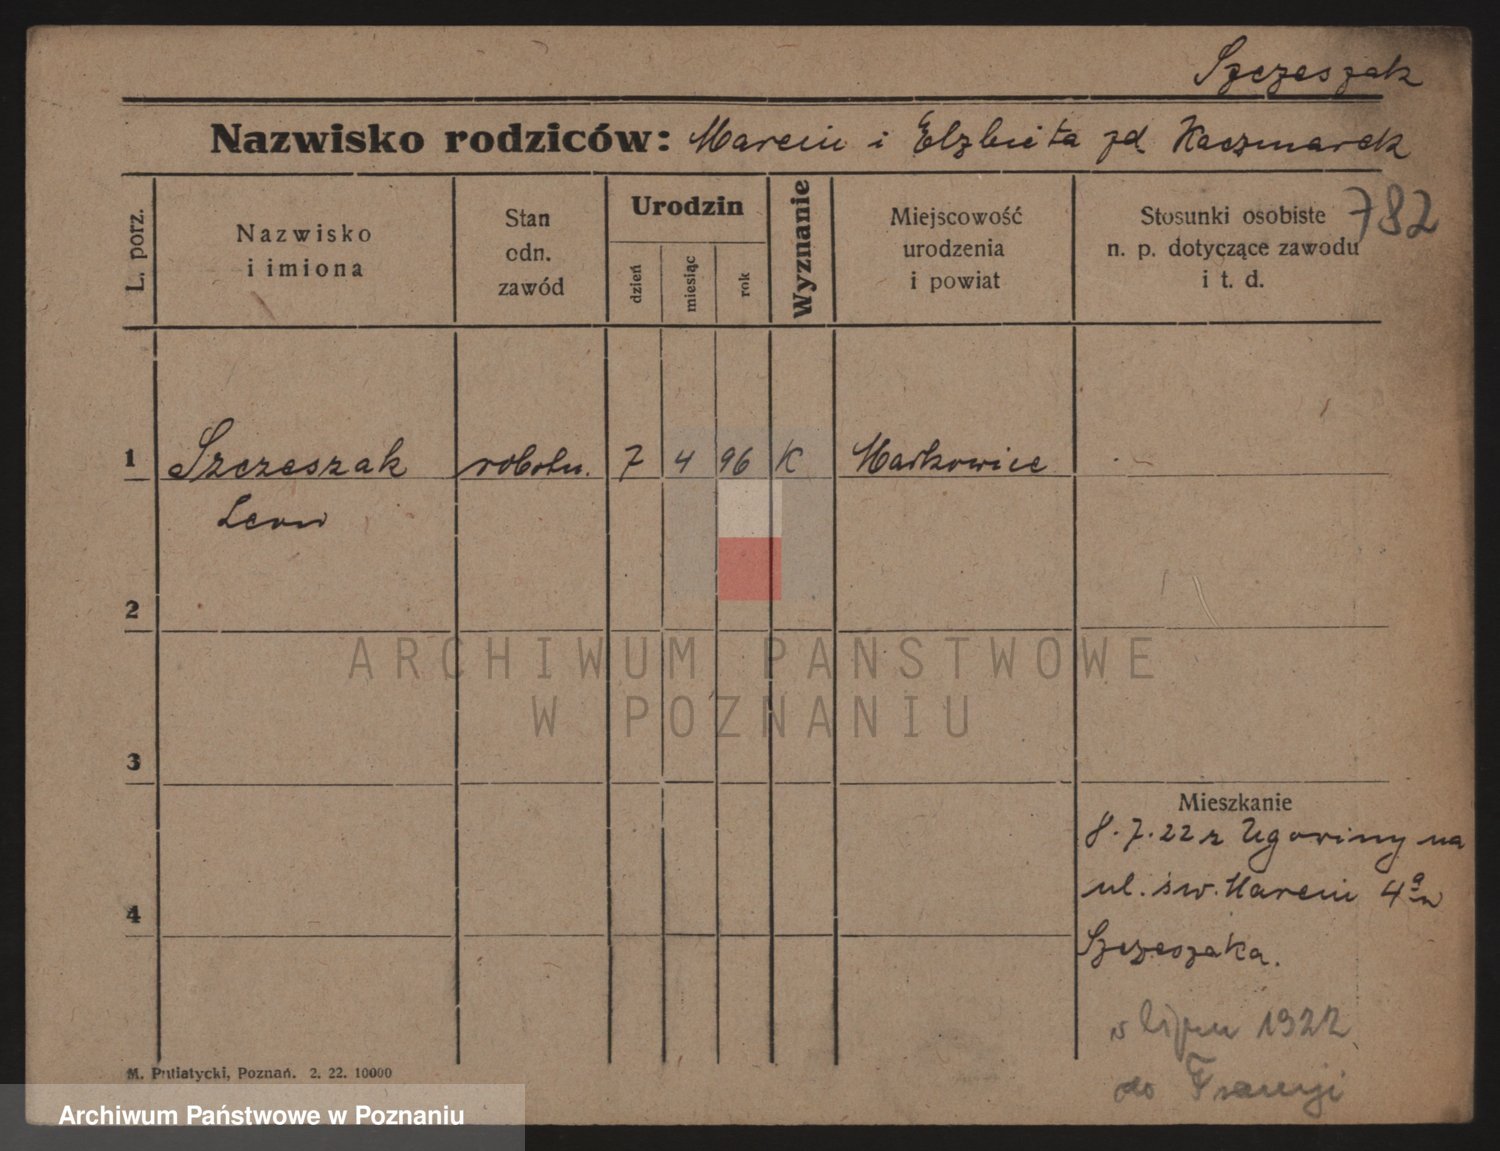 Szczeszak
Nazwisko rodziców: Marcin i Elzbieta zd Kaczmarek
782
L. porz.
Nazwisko
i imiona
Stan
odn.
zawód
Urodzin
dzień
miesiąc
rok
Wyznanie
Miejscowość
urodzenia
i powiat
Stosunki osobiste
n. p. dotyczące zawodu
i t. d.
1 Szczeszak robotn. 7 4 96 K Markowice
Leon
2
3
4
Mieszkanie
8.7.22 z Ugoriny na
ul. św. Marcin 4a u
Szczeszaka.
w lipcu 1922
do Francji
M. Putiatycki, Poznań. 2. 22. 10000
ARCHIWUM PAŃSTWOWE
W POZNANIU
Archiwum Państwowe w Poznaniu